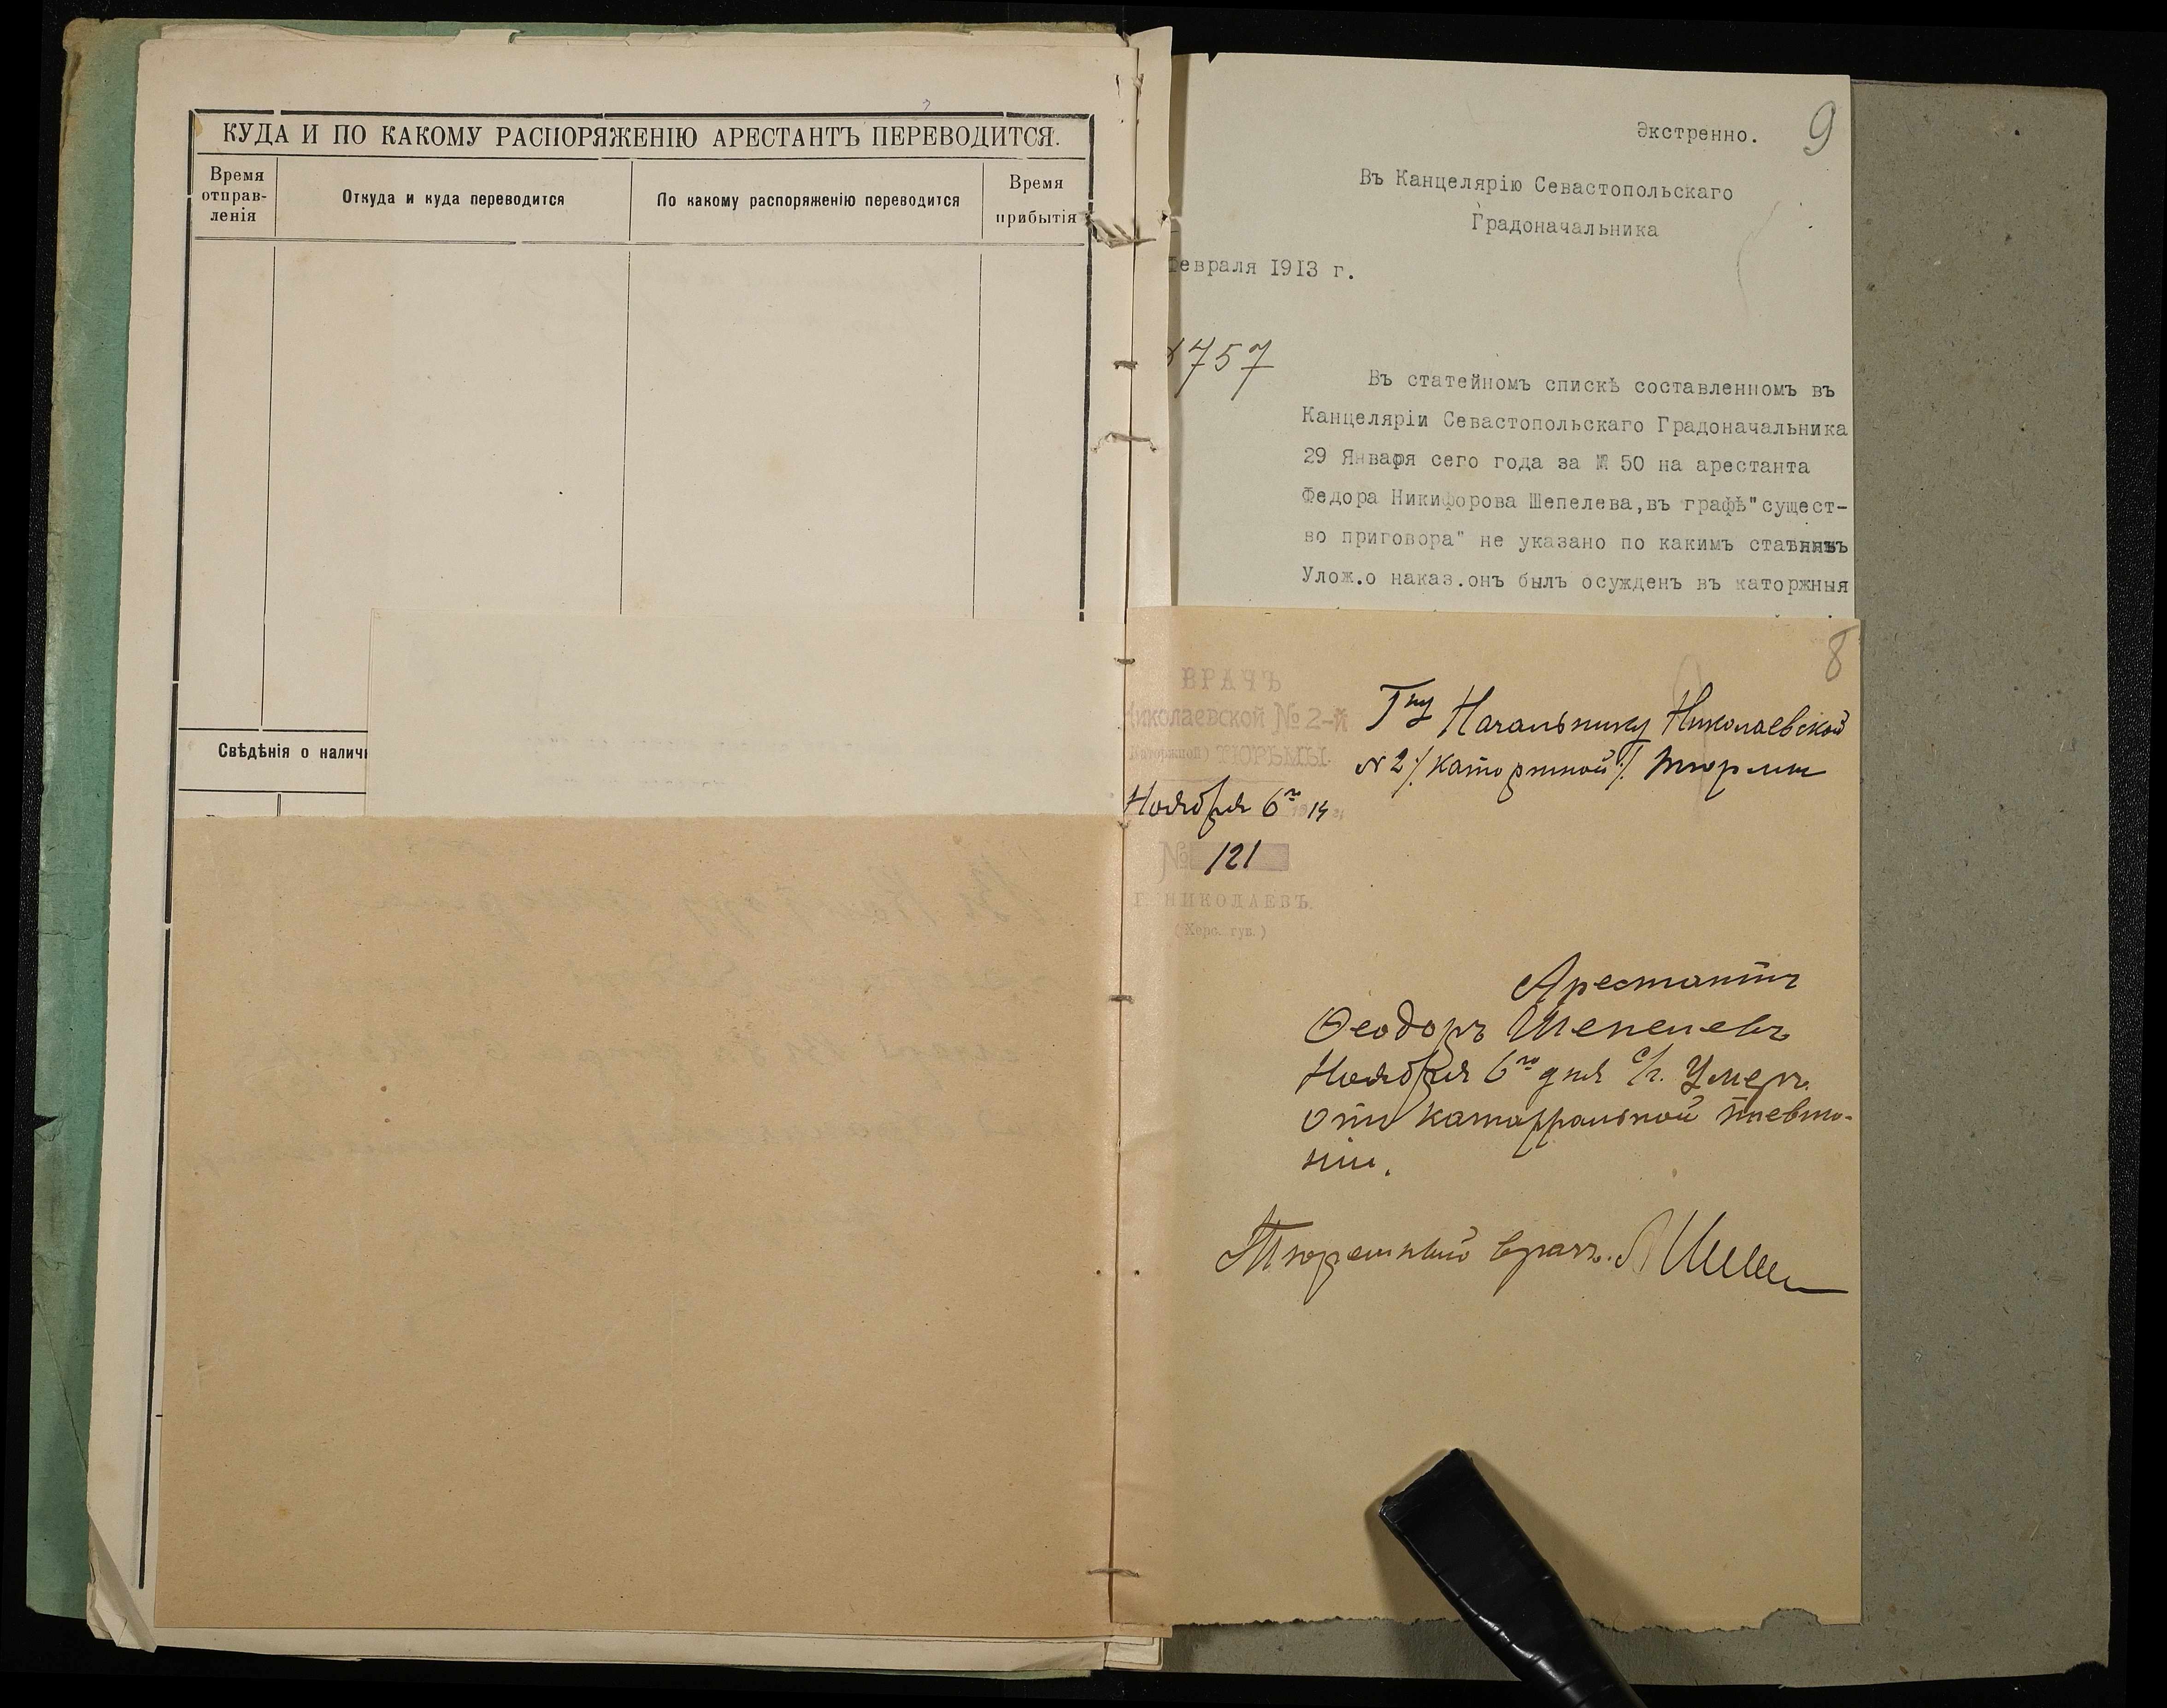 КУДА И ПО КАКОМУ РАСПОРЯЖЕНІЮ АРЕСТАНТЪ ПЕРЕВОДИТСЯ.
Время отправ-ленія
Откуда и куда переводится
По какому распоряженію переводится
Время прибытія
Свѣдѣнія о налич
9
Экстренно.
Въ Канцелярію Севастопольскаго
Градоначальника
евраля 1913 г.
1757
Въ статейномъ спискѣ составленномъ въ
Канцеляріи Севастопольскаго Градоначальника
29 Января сего года за № 50 на арестанта
Федора Никифорова Шепелева,въ графѣ"сущест-
во приговора" не указано по какимъ
Улож.о наказ.онъ былъ осужденъ въ каторжныя
8
ВРАЧЪ
Николаевской № 2-й
(Каторжной) ТЮРЬМЫ.
Ноября 6го 1914 г.
№ 121
Г. НИКОЛАЕВЪ.
(Херс. губ.)
Гну Начальнику Николаевской
N 2 /. каторжной /. тюрьмы
Арестантъ
Ѳеодоръ Шепелевъ
Ноября 6го дня с/г. Умеръ
отъ катарральной пневмо-
ніи.
Тюремный врачъ.